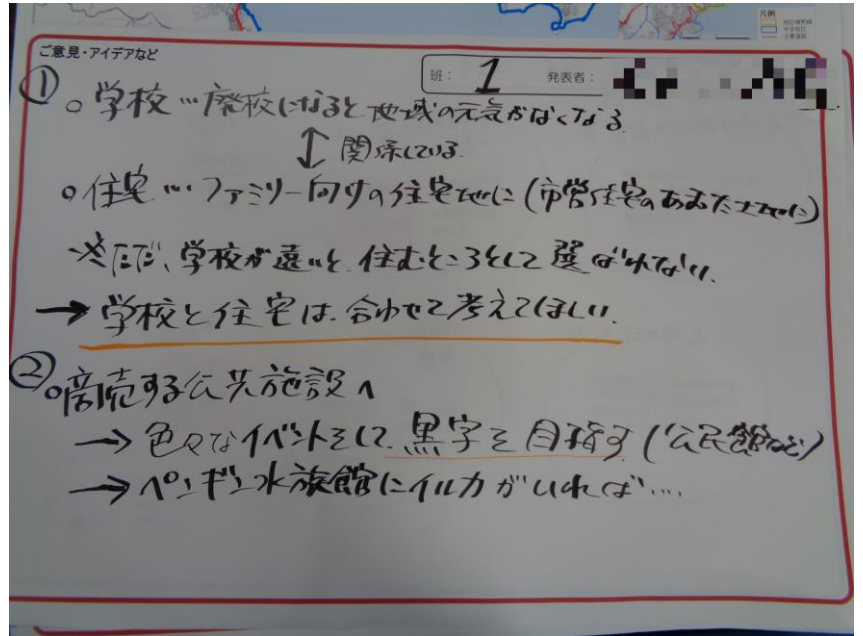 凡例
ご意見・アイデアなど
班： 1 発表者：
① ○学校…廃校になると地域の元気がなくなる
↕ 関係している
○住宅…ファミリー向けの住宅地に(市営住宅のあいた土地に)
※ただ、学校が遠いと、住むところとして選ばれない。
→ 学校と住宅は、合わせて考えてほしい。
② ○商売する公共施設へ
→ 色々なイベントをして、黒字を目指す(公民館など)
→ ペンギン水族館にイルカがいれば…